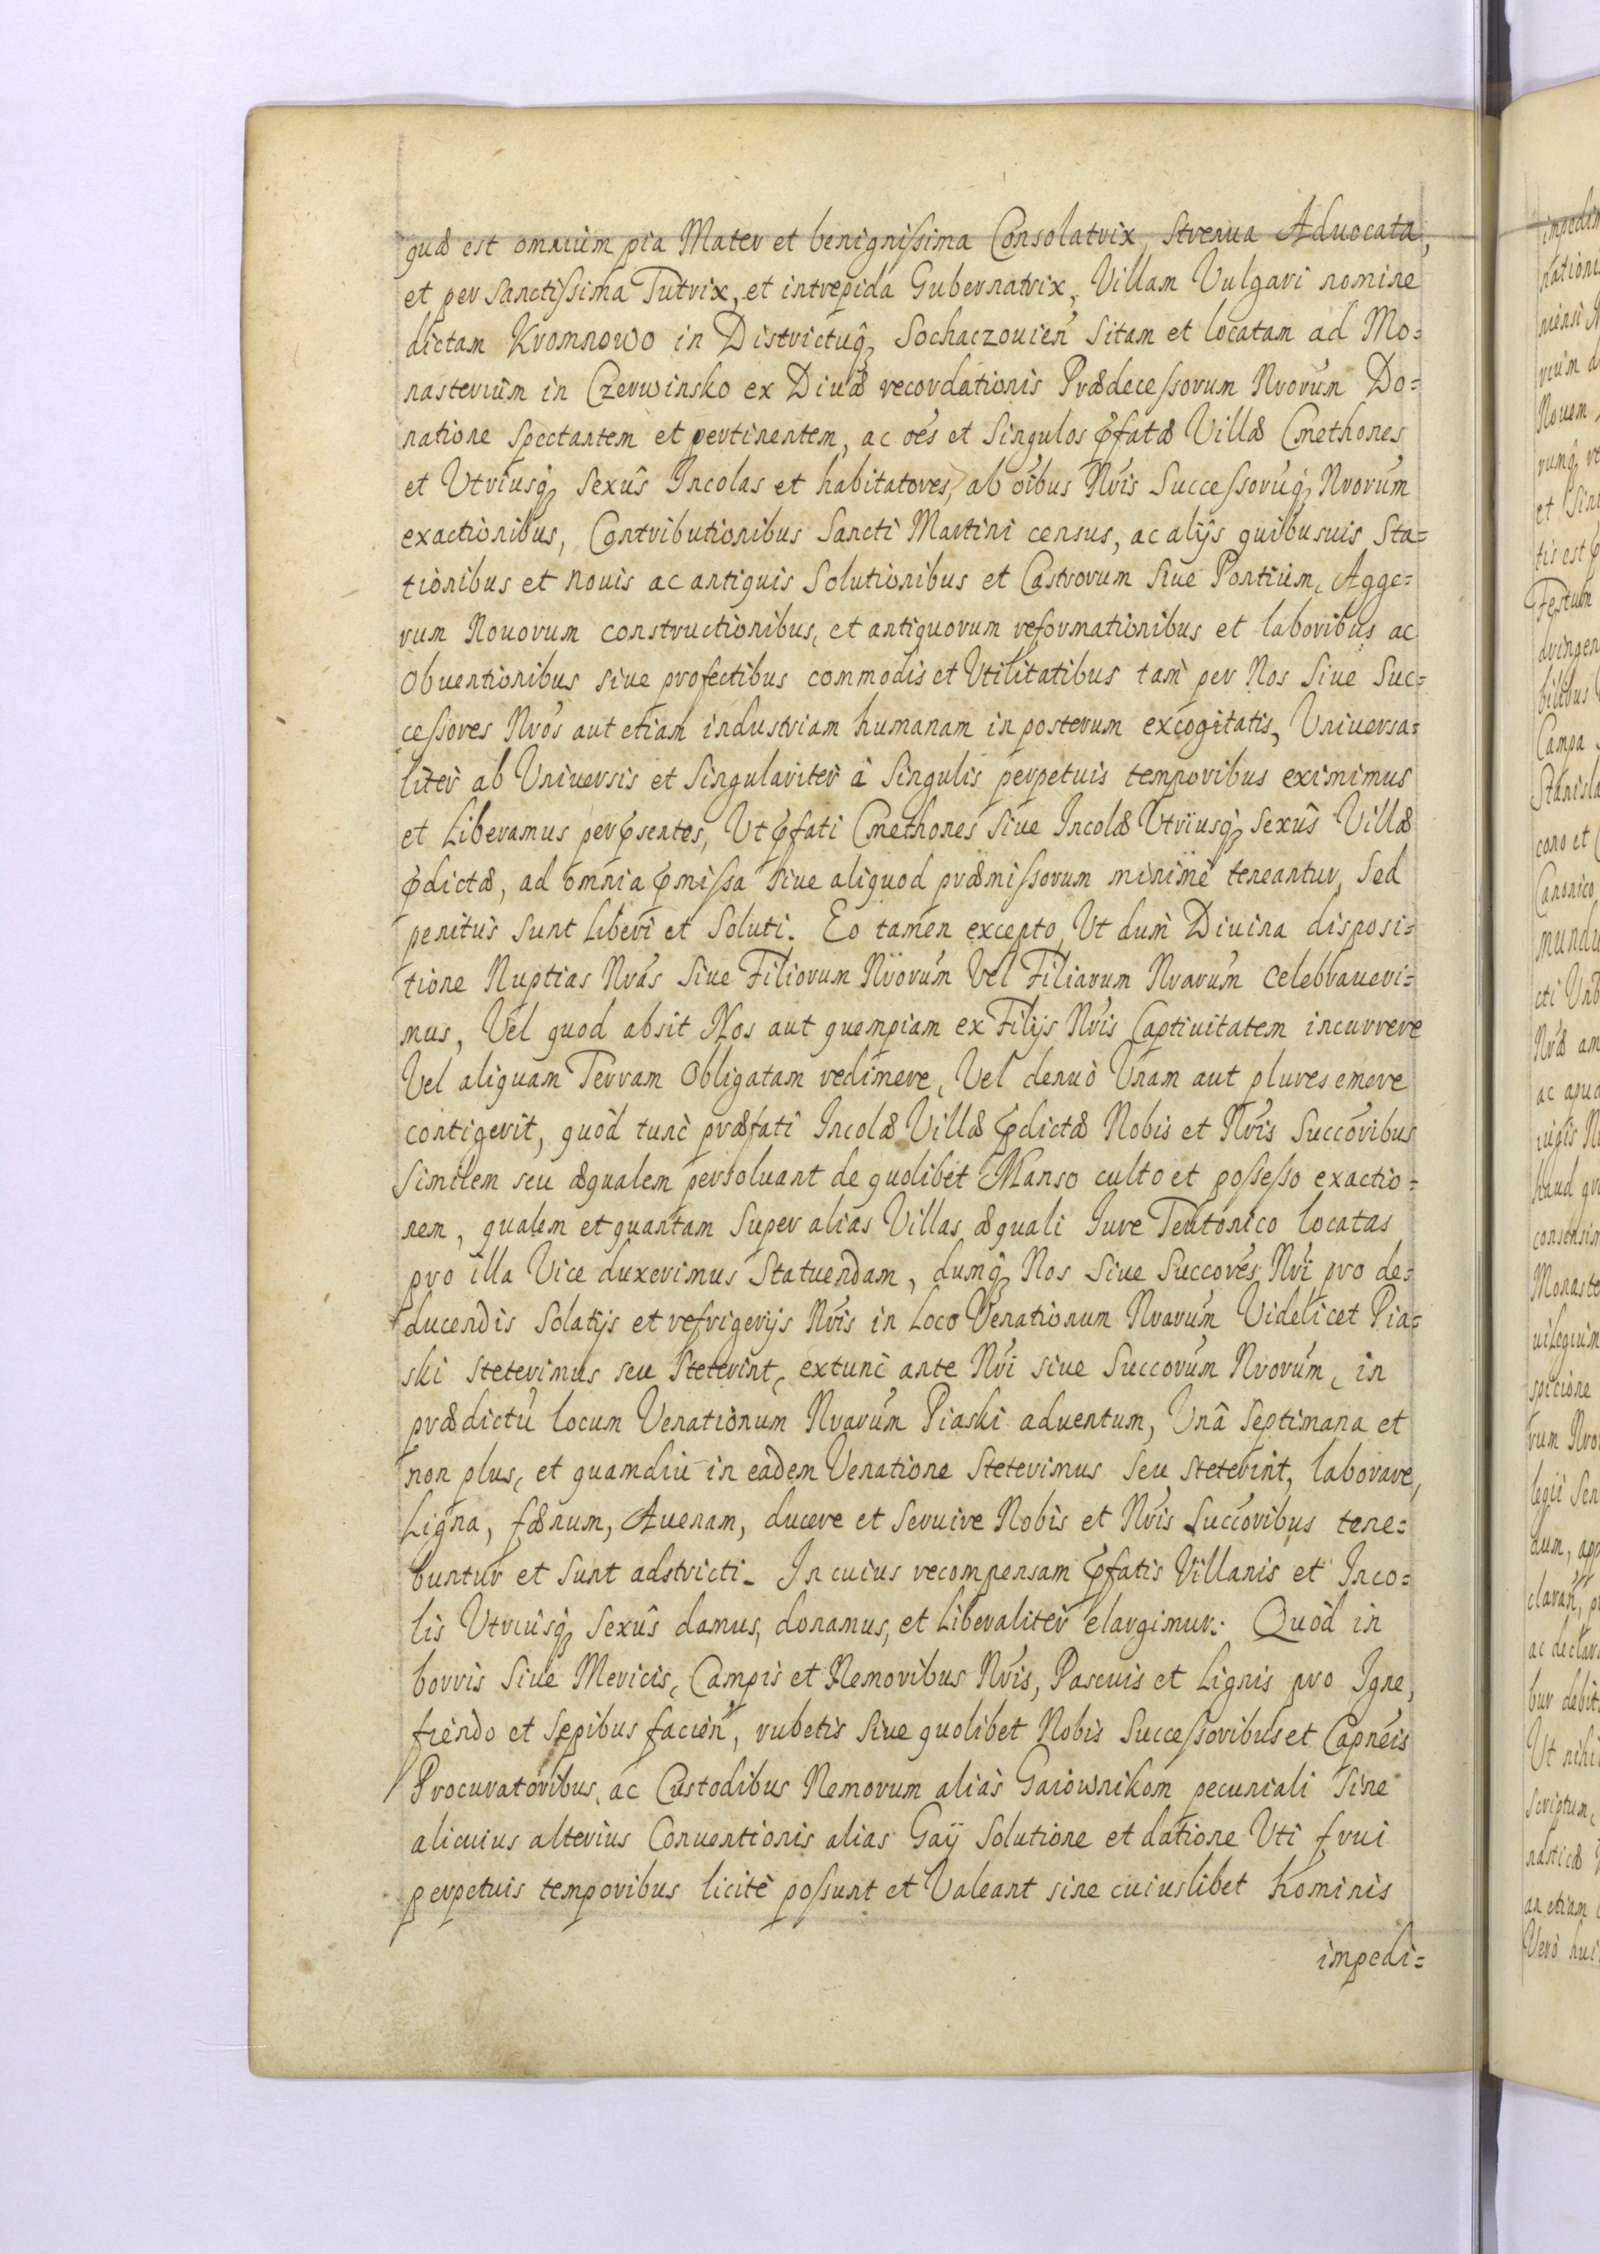 quæ est omnium pia Mater et benignissima Consolatrix, Strenua Aduocata,
et per Sanctissima Tutrix, et intrepida Gubernatrix, Villam Vulgari nomine
dictam Kromnowo in Districtuq̃ Sochaczouien̄ Sitam et locatam ad Mo=
nasterium in Czerwinsko ex Diuæ recordationis Prædecessorum Nrorum Do=
natione Spectantem et pertinentem, ac oēs et Singulos p̄fatæ Villæ Cmethones
et Vtriusq̃ Sexûs Incolas et habitatores, ab oībus Nrīs Successorūq̃ Nrorum
exactionibus, Contributionibus Sancti Martini census, ac alijs quibusuis Sta=
tionibus et nouis ac antiquis Solutionibus et Castrorum Siue Pontium, Agge=
rum Nouorum constructionibus, et antiquorum reformationibus et laboribus, ac
Obuentionibus siue profectibus commodis et Vtilitatibus tam per Nos Siue Suc=
cessores Nrōs aut etiam industriam humanam in posterum excogitatis, Vniuersa=
litèr ab Vniuersis et Singularitèr à Singulis perpetuis temporibus eximimus
et Liberamus per p̄sentes, Vt p̄fati Cmethones Siue Incolæ Vtriusq̃ Sexûs Villæ
p̄dictæ, ad omnia p̄missa Siue aliquod præmissorum minimè teneantur, Sed
penitùs Sunt Liberi et Soluti. Eo tamen excepto, Vt dum Diuina disposi=
tione Nuptias Nrās Siue Filiorum Nrorum Vel Filiarum Nrarum Celebraueri=
mus, Vel quod absit Nos aut quempiam ex Filijs Nrīs Captiuitatem incurrere
Vel aliquam Terram Obligatam redimere, Vel denuò Vnam aut plures emere
contigerit, quòd tunc præfati Incolæ Villæ p̄dictæ Nobis et Nrīs Succōribus
Similem seu æqualem persoluant de quolibet Manso culto et possesso exactio=
nem, qualem et quantam Super alias Villas æquali Iure Teutonico locatas
pro illa Vice duxerimus Statuendam, dumq̃ Nos Siue Succorēs Nrī pro de=
ducendis Solatijs et refrigerijs Nrīs in Loco Venationum Nrarum Videlicet Pia=
ski Steterimus seu Steterint, extunc ante Nrī siue Succorum Nrorum, in
prædictū locum Venationum Nrarum Piaski aduentum, Vnâ Septimana et
non plus, et quamdiu in eadem Venatione Steterimus Seu Steterint, laborare,
Ligna, fænum, Auenam, ducere et Seruire Nobis et Nrīs Succōribus tene=
buntur et Sunt adstricti. In cuius recompensam p̄fatis Villanis et Inco=
lis Vtriusq̃ Sexûs damus, donamus, et Liberalitèr elargimur. Quòd in
borris Siue Mericis, Campis et Nemoribus Nrīs, Pascuis et Lignis pro Igne,
friendo et Sepibus facien̄, rubetis Siue quolibet Nobis Successoribus et Capneis
Procuratoribus, ac Custodibus Nemorum aliàs Gaiownikom pecuniali Sine
alicuius alterius Conuentionis alias Gaÿ Solutione et datione Vti frui
perpetuis temporibus licitè possunt et Valeant sine cuiuslibet hominis
impedi=